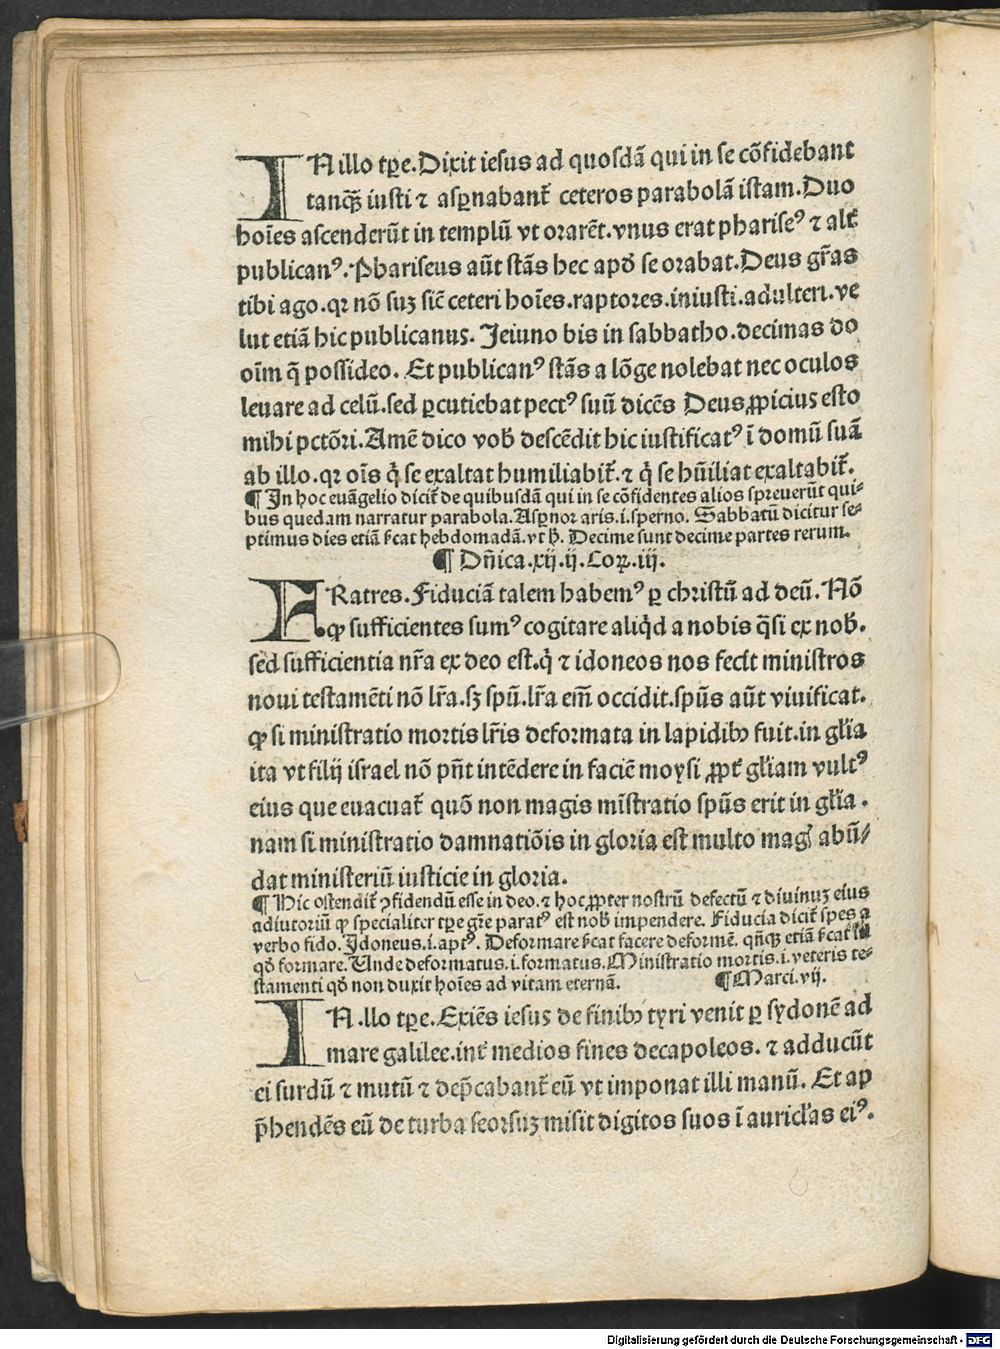 IN illo tꝑe. Dixit iesus ad quosdã qui in se cõfidebant
tanqꝫ iusti ⁊ aſꝑnabant᷑ ceteros parabolã istam. Duo
hoĩes ascenderũt in templũ vt orarẽt. vnus erat phariseꝰ ⁊ alt᷑
publicanꝰ. Phariseus aũt stãs hec apđ se orabat. Deus gr̃as
tibi ago. qr nõ suꝫ sic̃ ceteri hoĩes. raptores. iniusti. adulteri. ve
lut etiã hic publicanus. Jeiuno bis in sabbatho. decimas do
oĩm q̃ possideo. Et publicanꝰ stãs a lõge nolebat nec oculos
leuare ad celũ. sed ꝑcutiebat pectꝰ suũ dicẽs Deus ꝓpicius esto
mihi pctõri. Amẽ dico vob̃ descẽdit hic iustificatꝰ ĩ domũ suã
ab illo. qr oĩs q̇ se exaltat humiliabit᷑. ⁊ q̇ se hũiliat exaltabit᷑.
¶ In hoc euãgelio dicit᷑ de quibusdã qui in se cõfidentes alios spreuerũt qui⸗
bus quedam narratur parabola. Aſꝑnor aris. i. sperno. Sabbatũ dicitur se⸗
ptimus dies etiã s̃cat hebdomadã. vt h̃. Decime sunt decime partes rerum.
¶ Dñica. xij. ij. Corꝝ. iij.
FRatres. Fiduciã talem habemꝰ ꝑ christũ ad deũ. Nõ
ꝙ sufficientes sumꝰ cogitare aliqđ a nobis q̃si ex nob̃.
sed sufficientia nr̃a ex deo est. q̇ ⁊ idoneos nos fecit ministros
noui testamẽti nõ lr̃a. sꝫ spũ. lr̃a em̃ occidit. spũs aũt viuificat.
ꝙ si ministratio mortis lr̃is deformata in lapidibꝰ fuit. in gl̃ia
ita vt filij israel nõ pñt intẽdere in faciẽ moysi ꝓpt᷑ gl̃iam vultꝰ
eius que euacuat᷑ quõ non magis mĩstratio spũs erit in gl̃ia.
nam si ministratio damnatiõis in gloria est multo mag̃ abũ⸗
dat ministeriũ iusticie in gloria.
¶ Hic ostendit᷑ ꝯfidendũ esse in deo. ⁊ hoc ꝓpter nostrũ defectũ ⁊ diuinuꝫ eius
adiutoriũ ꝙ specialiter tꝑe gr̃e paratꝰ est nob̃ impendere. Fiducia dicit᷑ spes a
verbo fido. Idoneus. i. aptꝰ. Deformare s̃cat facere deformẽ. qñqꝫ etiã s̃cat
qđ formare. Unde deformatus. i. formatus. Ministratio mortis. i. veteris te⸗
stamenti qđ non duxit hoĩes ad vitam eternã. ¶ Marci. vij.
IN .llo tꝑe. Exiẽs iesus de finibꝰ tyri venit ꝑ sydonẽ ad
mare galilee. int᷑ medios fines decapoleos. ⁊ adducũt
ei surdũ ⁊ mutũ ⁊ dep̃cabant᷑ eũ vt imponat illi manũ. Et ap
p̃hendẽs eũ de turba seorsuꝫ misit digitos suos ĩ auricl̃as eiꝰ.
Digitalisierung gefördert durch die Deutsche Forschungsgemeinschaft - DFG